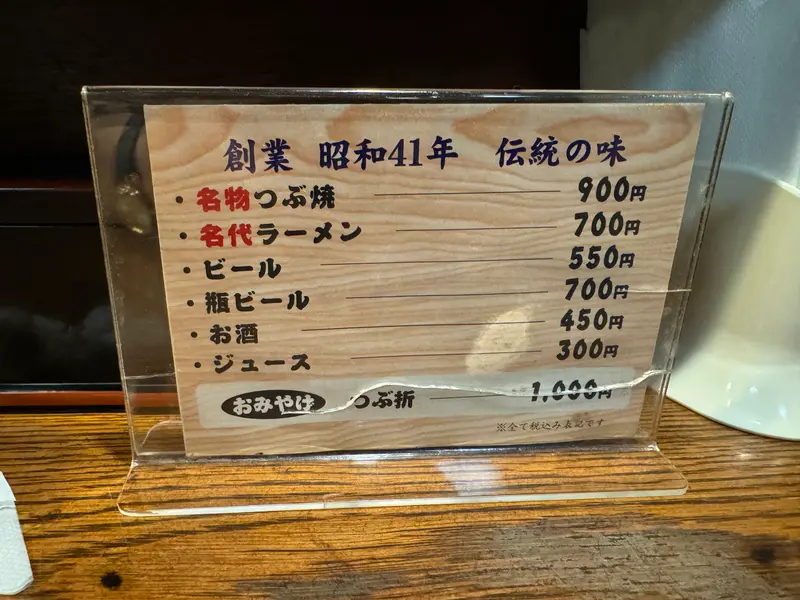 創業 昭和41年 伝統の味
・名物つぶ焼 900円
・名代ラーメン 700円
・ビール 550円
・瓶ビール 700円
・お酒 450円
・ジュース 300円
おみやけ つぶ折 1,000円
※全て税込み表記です